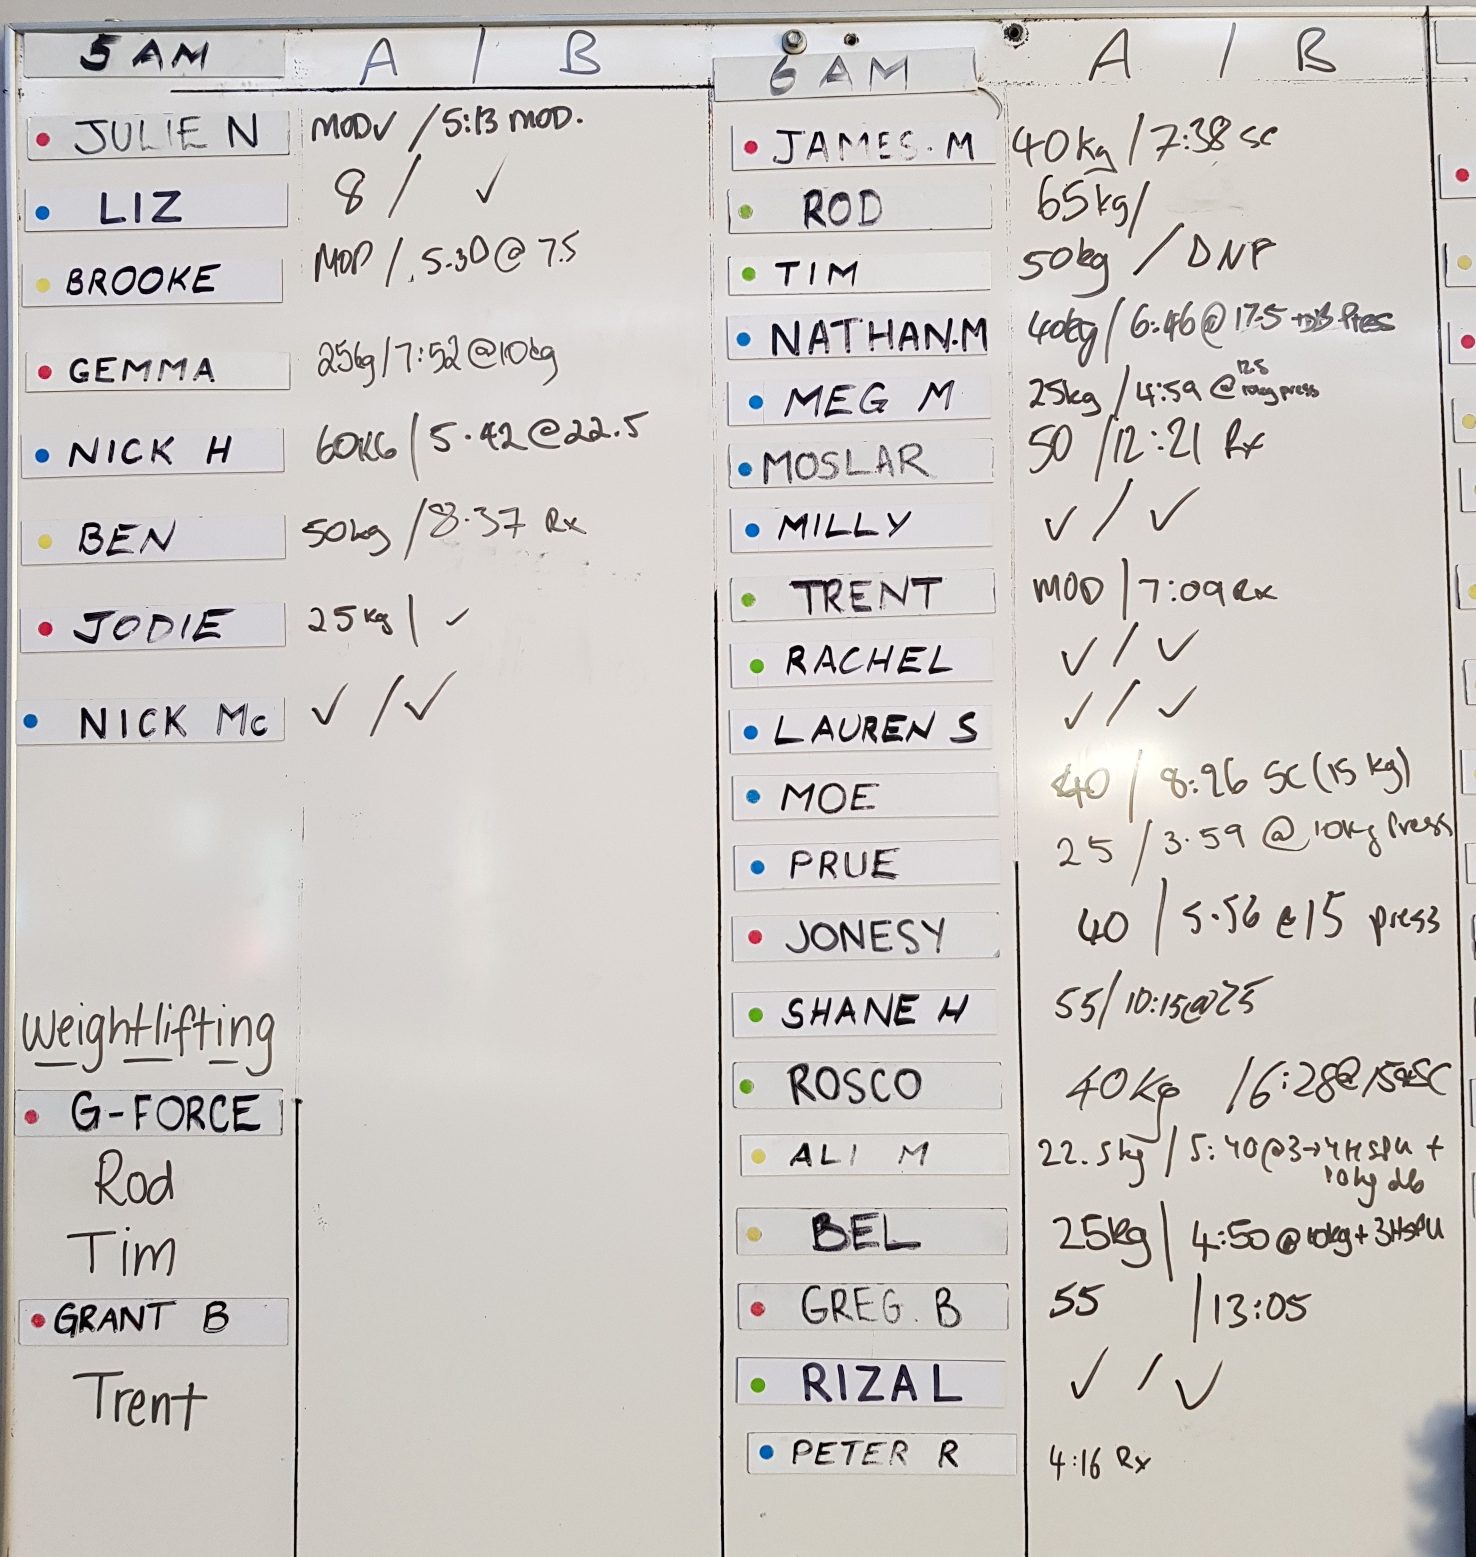 5 AM A / B
JULIE N MOD✓ / 5:13 MOD.
LIZ 8 / ✓
BROOKE MOD / 5.30 @ 7.5
GEMMA 25kg / 7:52 @ 10kg
NICK H 60KG / 5.42 @ 22.5
BEN 50kg / 8.37 Rx
JODIE 25kg / ✓
NICK Mc ✓ / ✓
Weightlifting
G-FORCE
Rod
Tim
GRANT B
Trent
6 AM A / B
JAMES.M 40kg / 7:38 SC
ROD 65kg/
TIM 50kg / DNF
NATHAN.M 40kg / 6:46 @ 17.5 + DB Press
12.5
MEG M 25kg / 4:59 @ 10kg press
MOSLAR 50 / 12:21 Rx
MILLY ✓ / ✓
TRENT MOD / 7:09 Rx
RACHEL ✓ / ✓
LAUREN S ✓ / ✓
MOE 40 / 8:26 SC (15 kg)
PRUE 25 / 3.59 @ 10kg Press
JONESY 40 / 5.56 @ 15 press
SHANE H 55 / 10:15 @ 25
ROSCO 40Kg / 6:28 @ 15 SC
ALI M 22.5kg / 5:40 @ 3→4 HSPU +
10kg db
BEL 25kg / 4:50 @ 10kg + 3HSPU
GREG. B 55 / 13:05
RIZAL ✓ / ✓
PETER R 4:16 Rx